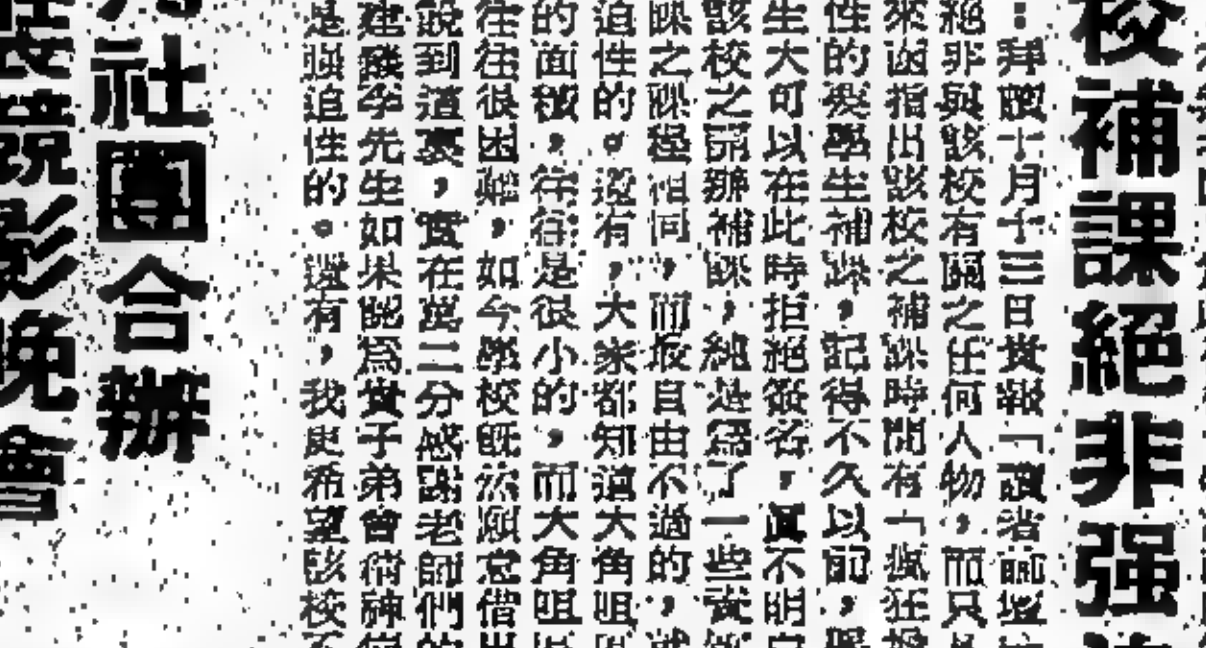 校補課絕非强
：拜讀十月十三日貴報「讀者
絕非與該校有關之任何人物，而只
來函指出該校之補課時間有「瘋狂
性的要學生補課，記得不久以前，
生大可以在此時拒絕簽名，眞不明
該校之開辦補課，純是爲了一些
課之課程相同，而最自由不過的，
迫性的。還有，大家都知道大角咀
的面積，往往是很小的，而大角咀
往往很困難，如今學校既然願意借
說到這裏，實在萬二分感謝老師們的
建議李先生如果認爲貴子弟會
是強迫性的。還有，我更希望該校
社團合辦
裝競影晚會